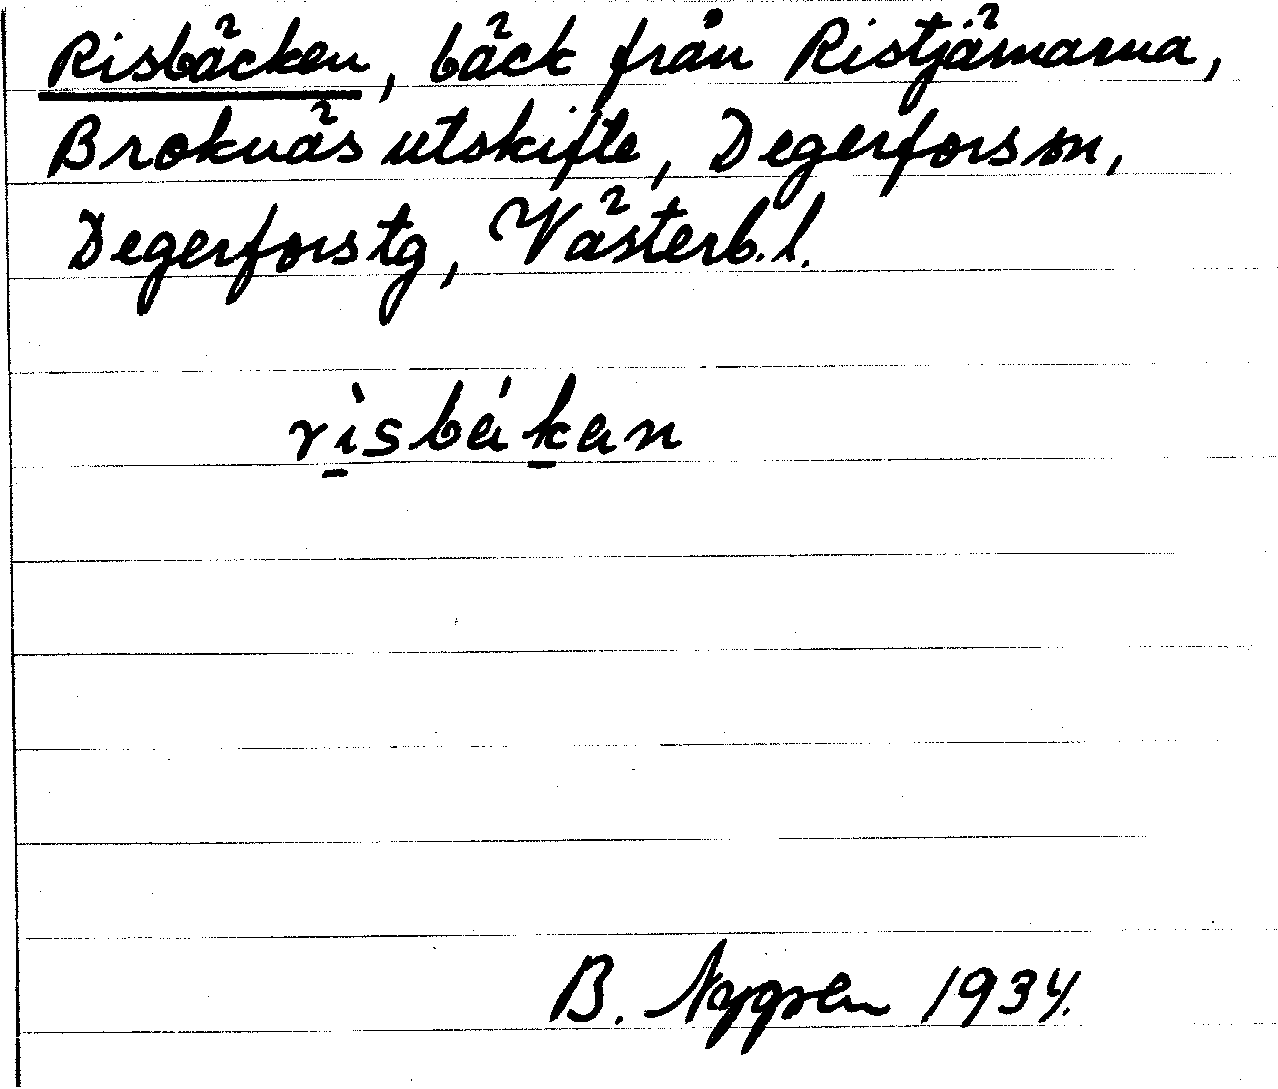 Risbäcken, bäck från Ristjärnarna,
Broknäs utskifte, Degerfors sn,
Degerfors tg, Västerb. l.
rìsbákan
B. Nygren 1934.